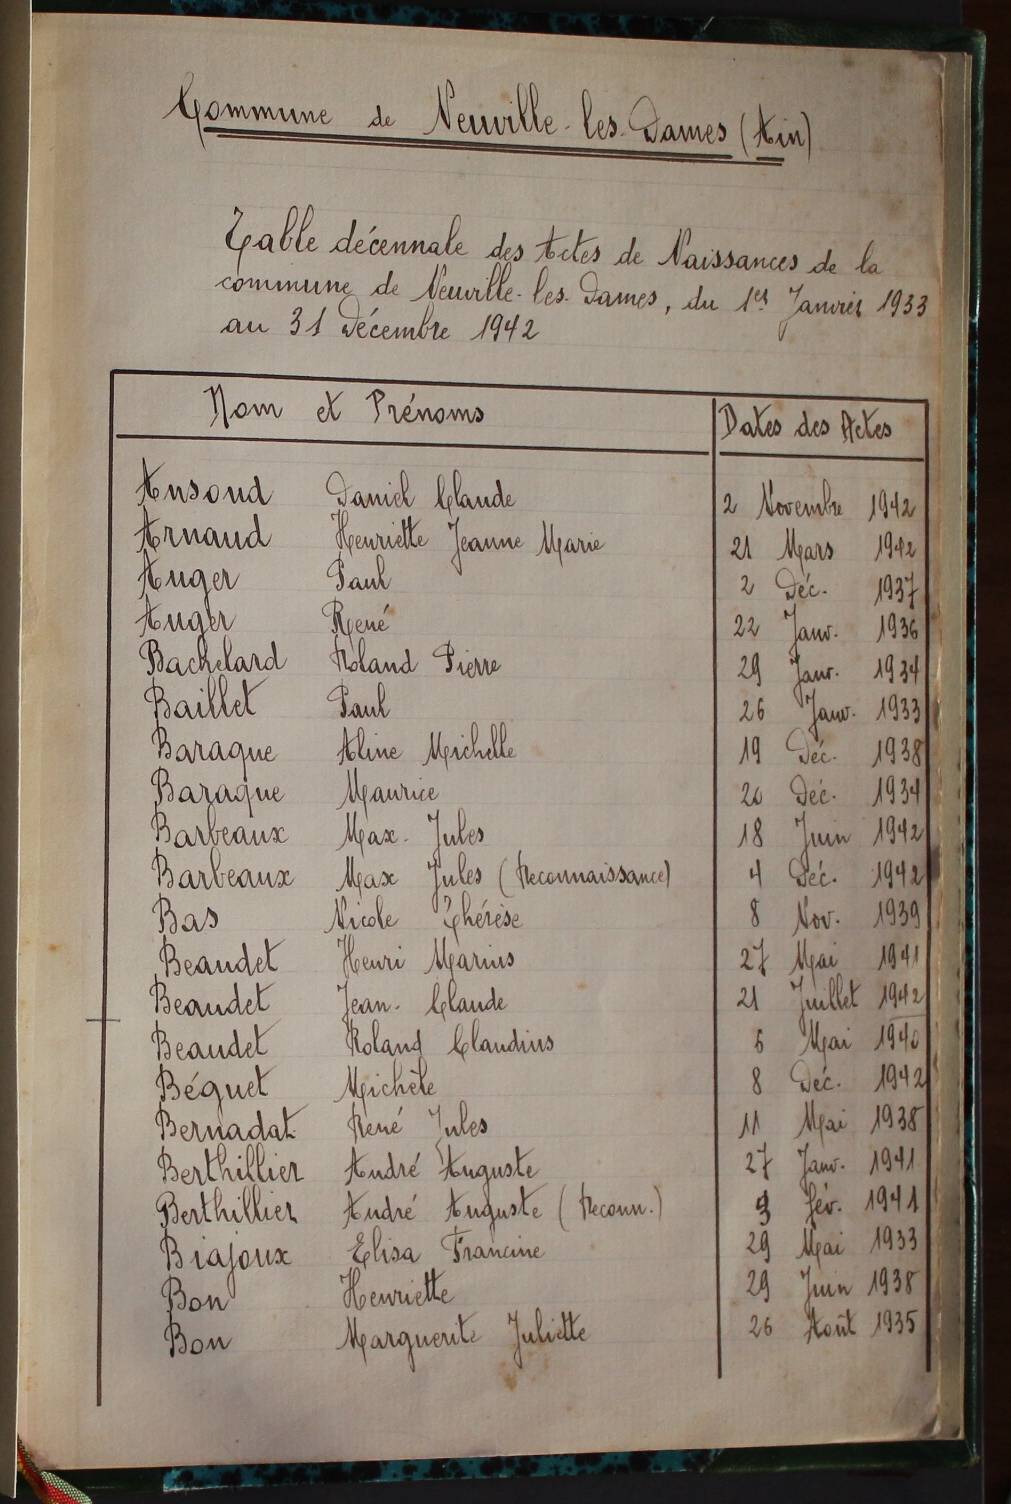 Commune de Neuville-les-Dames (Ain)
Table décennale des Actes de Naissances de la
commune de Neuville-les-Dames, du 1er Janvier 1933
au 31 Décembre 1942
Nom et Prénoms Dates des Actes
Ansoud Daniel Claude 2 Novembre 1942
Arnaud Henriette Jeanne Marie 21 Mars 1942
Auger Paul 2 Déc. 1937
Auger René 22 Janv. 1936
Bachelard Roland Pierre 29 Janv. 1934
Baillet Paul 26 Janv. 1933
Baraque Aline Michelle 19 Déc. 1938
Baraque Maurice 20 Déc. 1934
Barbeaux Max-Jules 18 Juin 1942
Barbeaux Max Jules (Reconnaissance) 4 Déc. 1942
Bas Nicole Thérèse 8 Nov. 1939
Beaudet Henri Marius 27 Mai 1941
Beaudet Jean-Claude 21 Juillet 1942
Beaudet Roland Claudius 6 Mai 1940
Béguet Michèle 8 Déc. 1942
Bernadat René Jules 11 Mai 1938
Berthillier André Auguste 27 Janv. 1941
Berthillier André Auguste (Reconn.) Fév. 1941
Biajoux Elisa Francine 29 Mai 1933
Bon Henriette 29 Juin 1938
Bon Marguerite Juliette 26 Août 1935